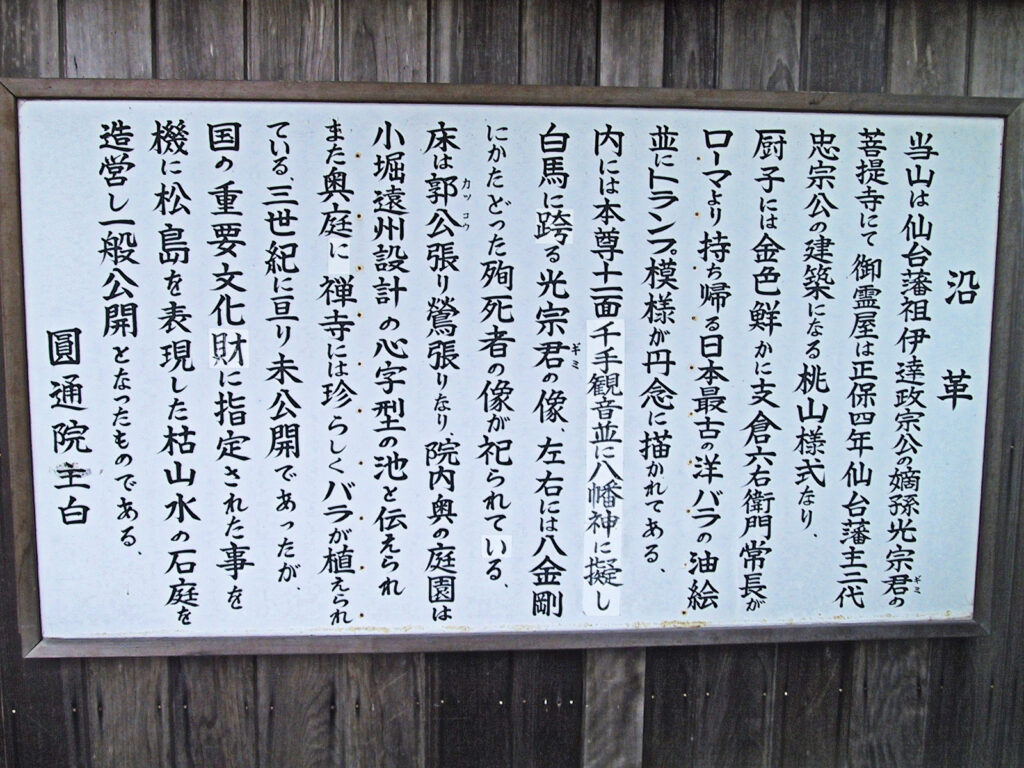 沿革
当山は仙台藩祖伊達政宗公の嫡孫光宗君の
ギミ
菩提寺にて御霊屋は正保四年仙台藩主二代
忠宗公の建築になる桃山様式なり、
厨子には金色鮮かに支倉六右衛門常長が
ローマより持ち帰る日本最古の洋バラの油絵
並にトランプ模様が丹念に描かれてある、
内には本尊十二面千手観音並に八幡神に擬し
白馬に跨る光宗君の像、左右には八金剛
ギミ
にかたどった殉死者の像が祀られている、
床は郭公張り鶯張りなり、院内奥の庭園は
カッコウ
小堀遠州設計の心字型の池と伝えられ
また奥庭に禅寺には珍らしくバラが植えられ
ている、三世紀に亘り未公開であったが、
国の重要文化財に指定された事を
機に松島を表現した枯山水の石庭を
造営し一般公開となったものである、
圓通院主白